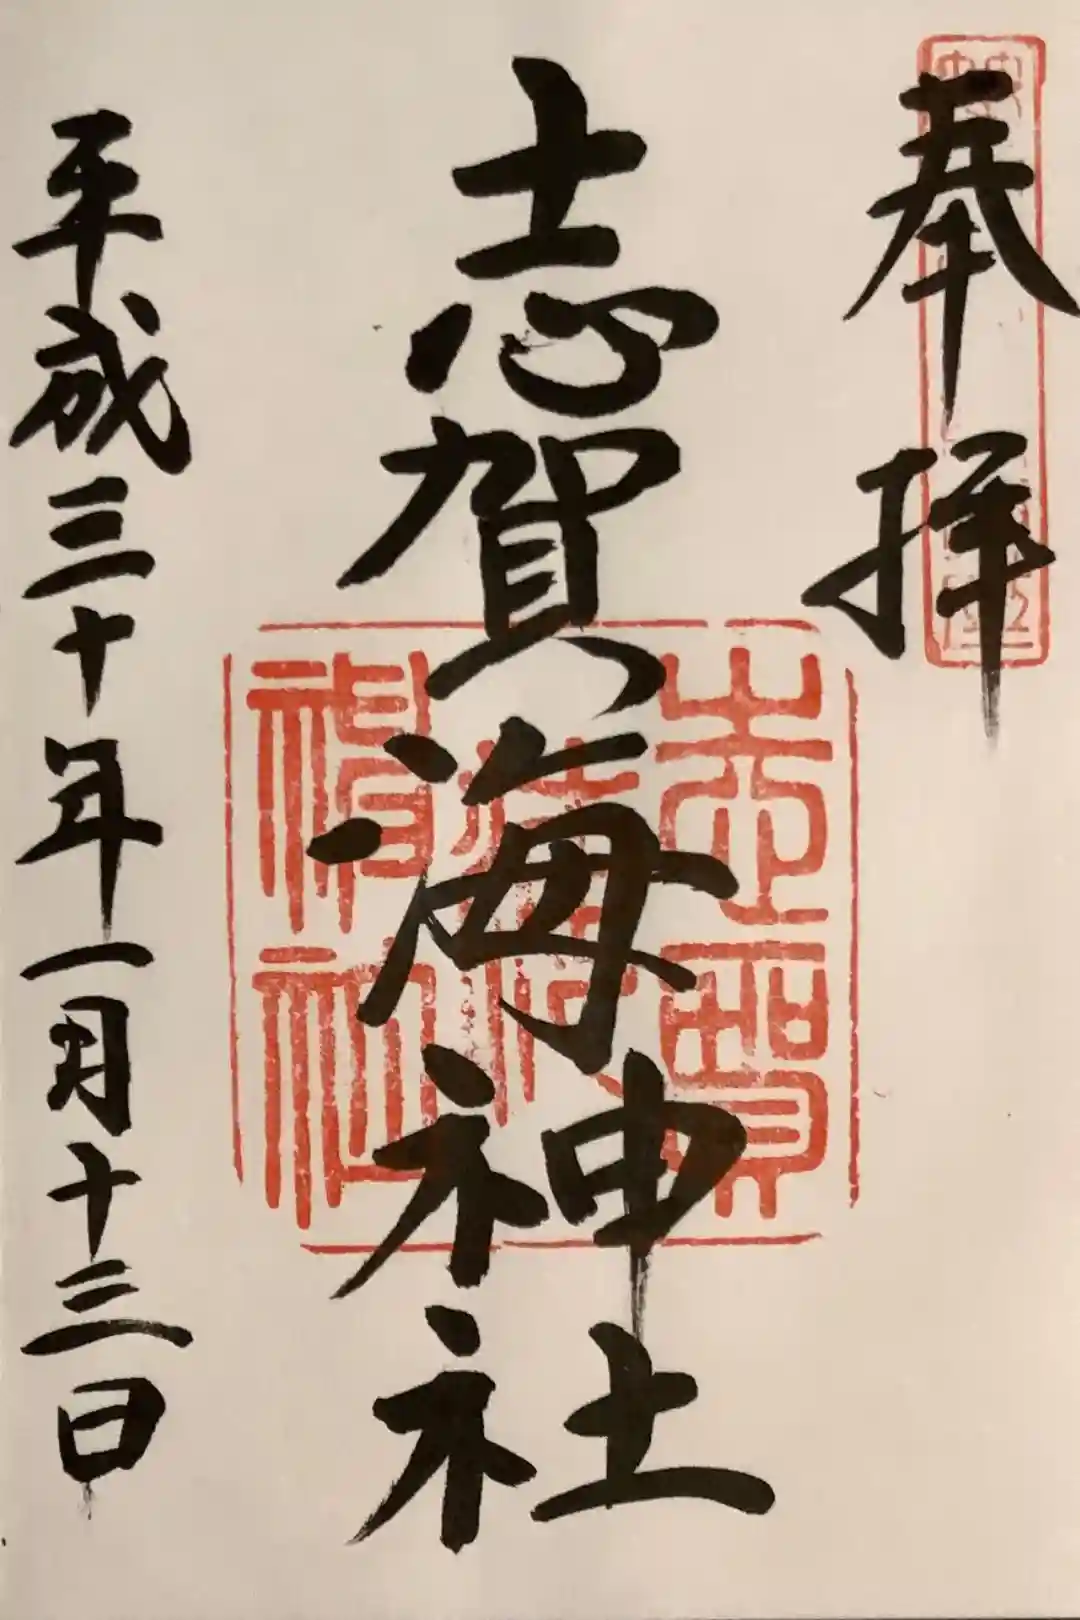 奉拝
志賀海神社
平成三十年一月十三日
志賀
海
神社